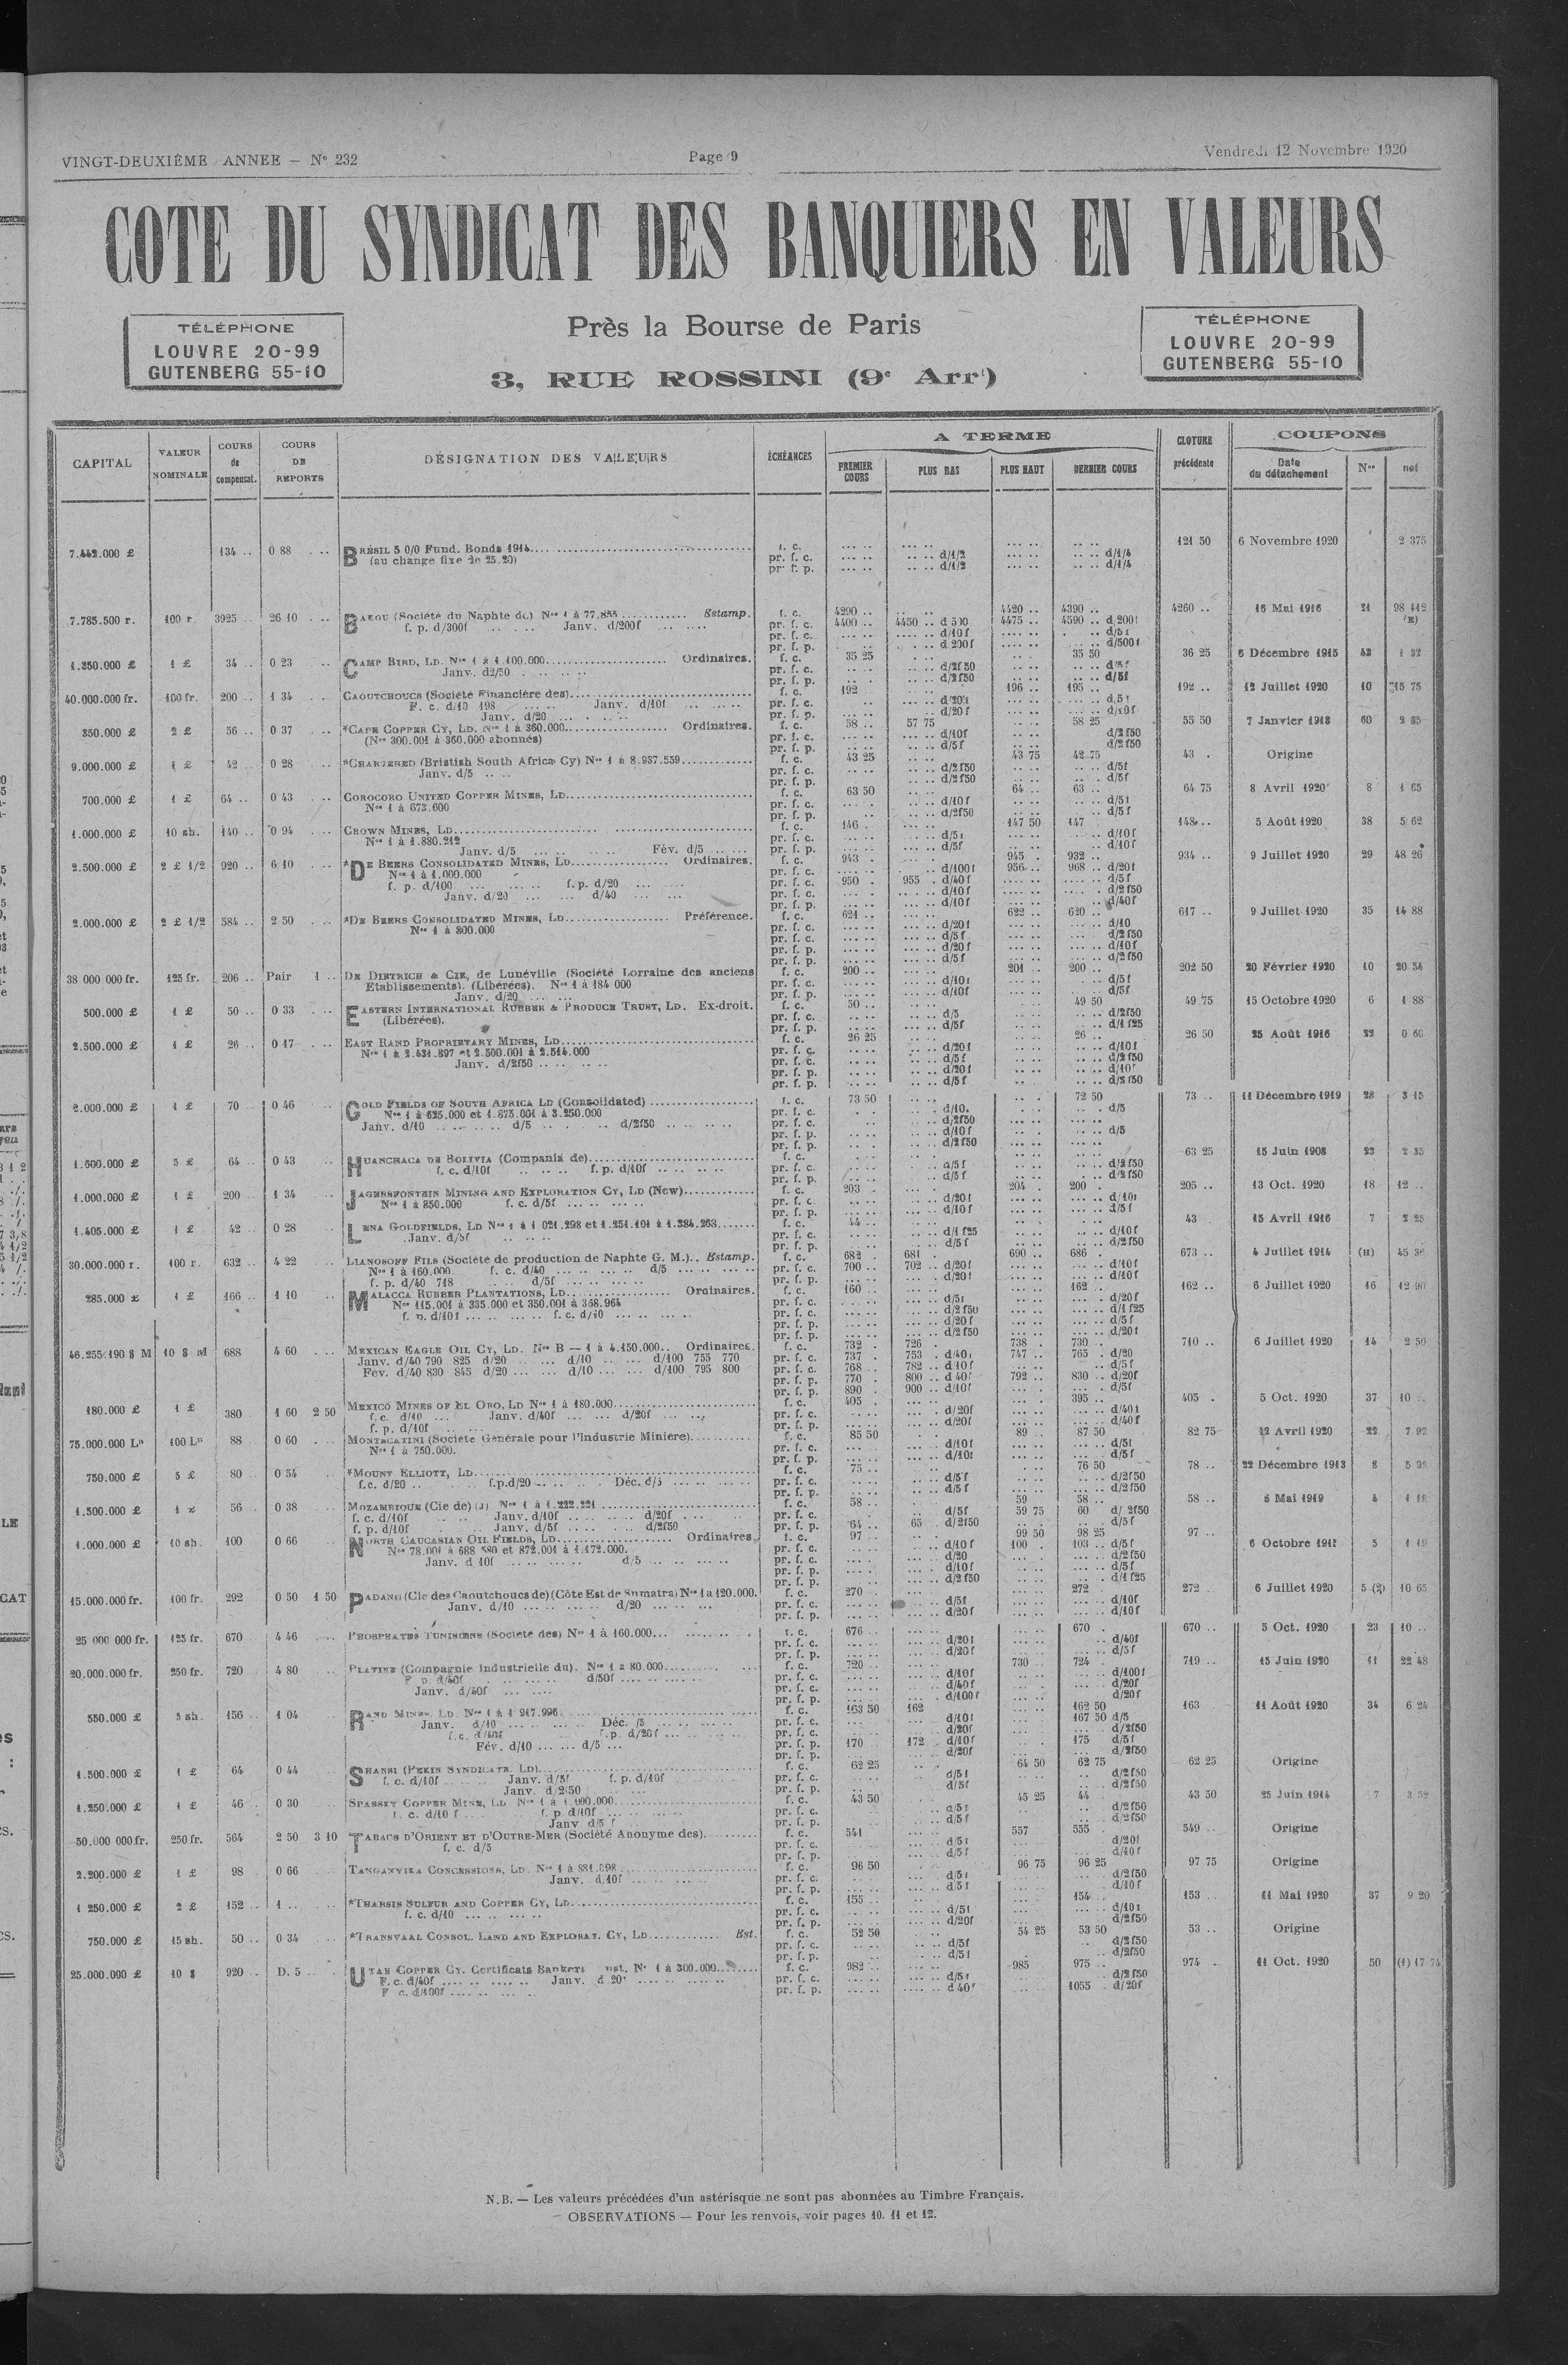 VINGT-DEUXIÈME ANNEE — N° 232
Page 9
Vendredi 12 Novembre 1920
COTE DU SYNDICAT DES BANQUIERS EN VALEURS
TÉLÉPHONE
LOUVRE 20-99
GUTENBERG 55-10
Près la Bourse de Paris
3, RUE ROSSINI (9e Arrt)
TÉLÉPHONE
LOUVRE 20-99
GUTENBERG 55-10
CAPITAL
VALEUR NOMINALE
COURS de compensat.
COURS DE REPORTS
DÉSIGNATION DES VALEURS
ÉCHÉANCES
A TERME
PREMIER COURS
PLUS BAS
PLUS HAUT
DERNIER COURS
CLOTURE précédente
COUPONS
Date du détachement
Nos
net
7.442.000 £ 134 .. 0 88 BRÉSIL 5 0/0 Fund. Bonds 1914 f. c. 121 50 6 Novembre 1920 2 375
(au change fixe de 25.20) pr. f. c. d/1/2 d/1/4
pr. f. p. d/1/2 d/1/4
7.785.500 r. 100 r. 3925 .. 26 10 BAKOU (Société du Naphte de) Nos 1 à 77.855 Estamp. f. c. 4290 .. 4420 .. 4390 .. 4260 .. 16 Mai 1916 21 98 112
f. p. d/300f Janv. d/200f pr. f. c. 4400 .. 4450 .. d 500 4475 .. 4590 .. d 200f
pr. f. c. d/10f d/5f
pr. f. p. d 200f d/500f
1.250.000 £ 1 £ 34 .. 0 23 CAMP BIRD, LD. Nos 1 à 1.100.000 Ordinaires. f. c. 35 25 35 50 36 25 6 Décembre 1915 42 1 32
Janv. d2/50 pr. f. c. d/2f50 d/5f
pr. f. p. d/2f50 d/5f
40.000.000 fr. 100 fr. 200 .. 1 34 CAOUTCHOUCS (Société Financière des) f. c. 192 196 .. 195 .. 192 .. 12 Juillet 1920 10 15 75
F. c. d/10 198 Janv. d/10f pr. f. c. d/20f d/5f
Janv. d/20 pr. f. p. d/20f d/10f
350.000 £ 2 £ 56 .. 0 37 *CAPE COPPER CY, LD. Nos 1 à 360.000 Ordinaires. f. c. 58 .. 57 75 58 25 55 50 7 Janvier 1918 60 2 35
(Nos 300.001 à 360.000 abonnés) pr. f. c. d/10f d/2f50
pr. f. p. d/5f d/2f50
9.000.000 £ 1 £ 42 .. 0 28 *CHARTERED (Bristish South Africa Cy) Nos 1 à 8.937.559 f. c. 43 25 43 75 42 75 43 . Origine
Janv. d/5 pr. f. c. d/2f50 d/5f
pr. f. p. d/2f50 d/5f
700.000 £ 1 £ 64 .. 0 43 COROCORO UNITED COPPER MINES, LD f. c. 63 50 64 .. 63 .. 64 75 8 Avril 1920 8 1 65
Nos 1 à 673.600 pr. f. c. d/10f d/5f
pr. f. p. d/2f50 d/5f
1.000.000 £ 10 sh. 140 .. 0 94 CROWN MINES, LD f. c. 146 . 147 50 147 148 .. 5 Août 1920 38 5 62
Nos 1 à 1.880.212 pr. f. c. d/5f d/10f
Janv. d/5 Fév. d/5 pr. f. p. d/5f d/10f
2.500.000 £ 2 £ 1/2 920 .. 6 10 *DE BEERS CONSOLIDATED MINES, LD Ordinaires. f. c. 943 . 945 . 932 .. 934 .. 9 Juillet 1920 29 48 26
Nos 1 à 1.000.000 pr. f. c. d/100f 956 .. 968 .. d/20f
f. p. d/100 f. p. d/20 pr. f. c. 950 . 955 . d/40f d/5f
Janv. d/20 d/40 pr. f. c. d/10f d/2f50
pr. f. p. d/10f d/40f
2.000.000 £ 2 £ 1/2 584 .. 2 50 *DE BEERS CONSOLIDATED MINES, LD Préférence. f. c. 621 .. 622 .. 620 .. 617 .. 9 Juillet 1920 35 14 88
Nos 1 à 800.000 pr. f. c. d/20f d/10
pr. f. c. d/5f d/2f50
pr. f. p. d/20f d/10f
pr. f. p. d/5f d/2f50
38 000 000 fr. 125 fr. 206 .. Pair 1 .. DE DIETRICH & CIE, de Lunéville (Société Lorraine des anciens f. c. 200 .. 201 .. 200 .. 202 50 20 Février 1920 10 20 54
Etablissements). (Libérées). Nos 1 à 184 000 pr. f. c. d/10f d/5f
Janv. d/20 pr. f. p. d/10f d/5f
500.000 £ 1 £ 50 .. 0 33 EASTERN INTERNATIONAL RUBBER & PRODUCE TRUST, LD. Ex-droit. f. c. 50 .. 49 50 49 75 15 Octobre 1920 6 1 88
(Libérées). pr. f. c. d/5 d/2f50
pr. f. p. d/5f d/1 f25
2.500.000 £ 1 £ 26 .. 0 17 EAST RAND PROPRIETARY MINES, LD f. c. 26 25 26 .. 26 50 25 Août 1916 22 0 60
Nos 1 à 2.431.897 et 2.500.001 à 2.514.000 pr. f. c. d/20f d/10f
Janv. d/2f50 pr. f. c. d/5f d/2f50
pr. f. p. d/20f d/10f
pr. f. p. d/5f d/2f50
2.000.000 £ 1 £ 70 .. 0 46 GOLD FIELDS OF SOUTH AFRICA LD (Consolidated) f. c. 73 50 72 50 73 .. 11 Décembre 1919 28 3 15
Nos 1 à 625.000 et 1.875.001 à 3.250.000 pr. f. c. d/10. d/5
Janv. d/10 d/5 d/2f50 pr. f. c. d/2f50
pr. f. p. d/10f d/5
pr. f. p. d/2f50
1.600.000 £ 5 £ 64 .. 0 43 HUANCHACA DE BOLIVIA (Compania de) f. c. 63 25 15 Juin 1908 23 2 35
f. c. d/10f f. p. d/10f pr. f. c. d/5f d/2f50
pr. f. p. d/5f d/2f50
1.000.000 £ 1 £ 200 .. 1 34 JAGERSFONTEIN MINING AND EXPLORATION CY, LD (New) f. c. 203 . 204 .. 200 . 205 .. 13 Oct. 1920 18 12 ..
Nos 1 à 850.000 f. c. d/5f pr. f. c. d/20f d/10f
pr. f. p. d/10f d/5f
1.405.000 £ 1 £ 42 .. 0 28 LENA GOLDFIELDS, LD Nos 1 à 1 021.298 et 1.251.101 à 1.384.263 f. c. 44 .. 43 15 Avril 1916 7 2 25
Janv. d/5f pr. f. c. d/1 f25 d/10f
pr. f. p. d/5f d/2f50
30.000.000 r. 100 r. 632 .. 4 22 LIANOSOFF FILS (Société de production de Naphte G. M.) Estamp. f. c. 682 681 . 690 .. 686 . 673 .. 4 Juillet 1914 (H) 45 36
Nos 1 à 160.000 f. c. d/40 d/5 pr. f. c. 700 .. 702 .. d/20f d/10f
f. p. d/40 718 d/5f pr. f. p. d/20f d/10f
285.000 £ 1 £ 166 .. 1 10 MALACCA RUBBER PLANTATIONS, LD Ordinaires. f. c. 160 .. 162 .. 162 .. 6 Juillet 1920 16 12 90
Nos 115.001 à 335.000 et 350.001 à 368.964 pr. f. c. d/5f d/20f
f. p. d/10f f. c. d/10 pr. f. c. d/2f50 d/1 f25
pr. f. p. d/20f d/5f
pr. f. p. d/2f50 d/20f
46.255.190 $ M 10 $ M 688 4 60 MEXICAN EAGLE OIL CY, LD. Nos B — 1 à 4.150.000 Ordinaires. f. c. 732 . 726 . 738 . 730 .. 710 .. 6 Juillet 1920 14 2 50
Janv. d/40 790 825 d/20 d/10 d/100 755 770 pr. f. c. 737 . 753 . d/40f 747 .. 765 . d/20
Fev. d/40 830 845 d/20 d/10 d/100 795 800 pr. f. c. 768 .. 782 .. d/10f d/5f
pr. f. p. 770 . 800 .. d 40f 792 .. 830 .. d/20f
pr. f. p. 890 . 900 .. d/10f d/5f
180.000 £ 1 £ 380 1 60 2 50 MEXICO MINES OF EL ORO, LD Nos 1 à 180.000 f. c. 405 . 395 .. 405 . 5 Oct. 1920 37 10 ..
f. c. d/10 Janv. d/40f d/20f pr. f. c. d/20f d/40f
f. p. d/10f pr. f. p. d/20f d/40f
75.000.000 Ls 100 Ls 88 .. 0 60 MONTECATINI (Société Générale pour l'Industrie Minière) f. c. 85 50 89 .. 87 50 82 75 12 Avril 1920 22 7 92
Nos 1 à 750.000. pr. f. c. d/10f d/5f
pr. f. p. d/10f d/5f
750.000 £ 5 £ 80 .. 0 54 *MOUNT ELLIOTT, LD f. c. 75 .. 76 50 78 .. 22 Décembre 1913 8
f.c. d/20 f.p.d/20 Déc. d/5 pr. f. c. d/5f d/2f50
pr. f. p. d/5f d/2f50
1.500.000 £ 56 .. 0 38 MOZAMBIQUE (Cie de) (J) Nos 1 à 1.222.221 f. c. 58 .. 59 58 .. 58 .. 5 Mai 1919 4 1 18
f. c. d/10f Janv. d/10f d/20f pr. f. c. d/5f 59 75 60 d/ 2f50
f. p. d/10f Janv. d/5f d/2f50 pr. f. p. 64 .. 65 . d/2f50 d/5f
1.000.000 £ 10 sh. 100 0 66 NORTH CAUCASIAN OIL FIELDS, LD Ordinaires. f. c. 97 .. 99 50 98 25 97 .. 6 Octobre 5 1 19
Nos 78.001 à 688 580 et 872.001 à 1.172.000. pr. f. c. d/10f 100 . 103 .. d/5f
Janv. d 10f d/5 pr. f. c. d/20 d/2f50
pr. f. p. d/10f d/5f
pr. f. p. d/2f50 d/1 f25
15.000.000 fr. 100 fr. 292 0 50 1 50 PADANG (Cie des Caoutchoucs de) (Côte Est de Sumatra) Nos 1 a 120.000. f. c. 270 .. 272 . 272 . 6 Juillet 1920 5 (2) 10 65
Janv. d/10 d/20 pr. f. c. d/5f d/10f
pr. f. p. d/20f d/10f
25 000 000 fr. 125 fr. 670 4 46 PHOSPHATES TUNISIENS (Société des) Nos 1 à 160.000 f. c. 676 .. 670 . 670 .. 5 Oct. 1920 23 10 ..
pr. f. c. d/20f d/40f
pr. f. p. d/20f d/5f
20.000.000 fr. 250 fr. 720 4 80 PLATINE (Compagnie Industrielle du). Nos 1 à 80.000 f. c. 720 .. 730 .. 724 . 719 .. 15 Juin 1920 11 22 48
F. p. d/40f d/50f pr. f. c. d/10f d/100f
Janv. d/40f pr. f. c. d/40f d/20f
pr. f. p. d/100f d/20f
550.000 £ 5 sh. 156 1 04 RAND MINES, LD. Nos 1 à 1 917.996 f. c. 163 50 162 162 50 163 11 Août 1920 34 6 24
Janv. d/10 Déc. /5 pr. f. c. d/10f 167 50 d/5
f.c. d/40f f.p. d/20f pr. f. c. d/20f d/2f50
Fév. d/10 d/5 pr. f. p. 170 .. 172 . d/10f 175 d/5f
pr. f. p. d/20f d/2f50
1.500.000 £ 1 £ 64 0 44 SHANSI (PEKIN SYNDICATE, LD) f. c. 62 25 64 50 62 75 62 25 Origine
f. c. d/10f Janv. d/5f f. p. d/10f pr. f. c. d/5f d/2f50
Janv. d/2f50 pr. f. p. d/5f d/2f50
1.250.000 £ 1 £ 46 .. 0 30 SPASSKY COPPER MINE, LD Nos 1 à 1.000.000 f. c. 43 50 45 25 44 43 50 25 Juin 1914 7 3 52
f. c. d/10 f f. p. d/10f pr. f. c. d/5f d/2f50
Janv d/5 f pr. f. p. d/5f d/2f50
50.000 000 fr. 250 fr. 564 2 50 3 10 TABACS D'ORIENT ET D'OUTRE-MER (Société Anonyme des) f. c. 541 557 555 .. 549 .. Origine
f. c. d/5 pr. f. c. d/5f d/20f
pr. f. p. d/5f d/40f
2.200.000 £ 1 £ 98 0 66 TANGANYIKA CONCESSIONS, LD. Nos 1 à 881.098 f. c. 96 50 96 75 96 25 97 75 Origine
Janv. d.10f pr. f. c. d/5f d/2f50
pr. f. p. d/5f d/10f
1 250.000 £ 2 £ 152 .. 1 .. *THARSIS SULFUR AND COPPER CY, LD f. c. 155 .. 154 .. 153 . 11 Mai 1920 37 9 20
f. c. d/10 pr. f. c. d/5f d/10f
pr. f. p. d/20f d/2f50
750.000 £ 15 sh. 50 .. 0 34 *TRANSVAAL CONSOL. LAND AND EXPLORAT. CY, LD Est. f. c. 52 50 54 25 53 50 53 .. Origine
pr. f. c. d/5f d/2f50
pr. f. p. d/5f d/2f50
25.000.000 £ 10 $ 920 .. D. 5 .. UTAH COPPER CY. Certificats Bankers Nos 1 à 300.000 f. c. 982 .. 985 975 .. 974 . 11 Oct. 1920 50 (1) 17 74
F. c. d/40f Janv. d 20f pr. f. c. d/5f d/2f50
F c. d/100f pr. f. p. d 40f 1055 . d/20f
N.B. — Les valeurs précédées d'un astérisque ne sont pas abonnées au Timbre Français.
OBSERVATIONS — Pour les renvois, voir pages 10. 11 et 12.